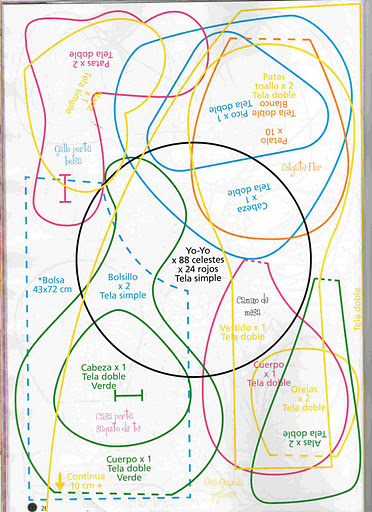 Patas x 2
Tela doble
Tela simple
Gallo porta
bolsa
Patas
toalla x 2
Tela doble
Pico x 1
Tela doble
Blanco
Tela doble
Petalo
x 10
Colgate Flor
Cabeza
x 1
Tela doble
Yo-Yo
x 88 celestes
x 24 rojos
Tela simple
*Bolsa
43x72 cm
Bolsillo
x 2
Tela simple
Camino de
mesa
Vestido x 1
Tela doble
Tela doble
Cabeza x 1
Tela doble
Verde
Cuerpo
x 1
Tela doble
Orejas
x 2
Tela doble
Alas x 2
Tela doble
Casa porta
Cuerpo x 1
Tela doble
Verde
Continua
10 cm +